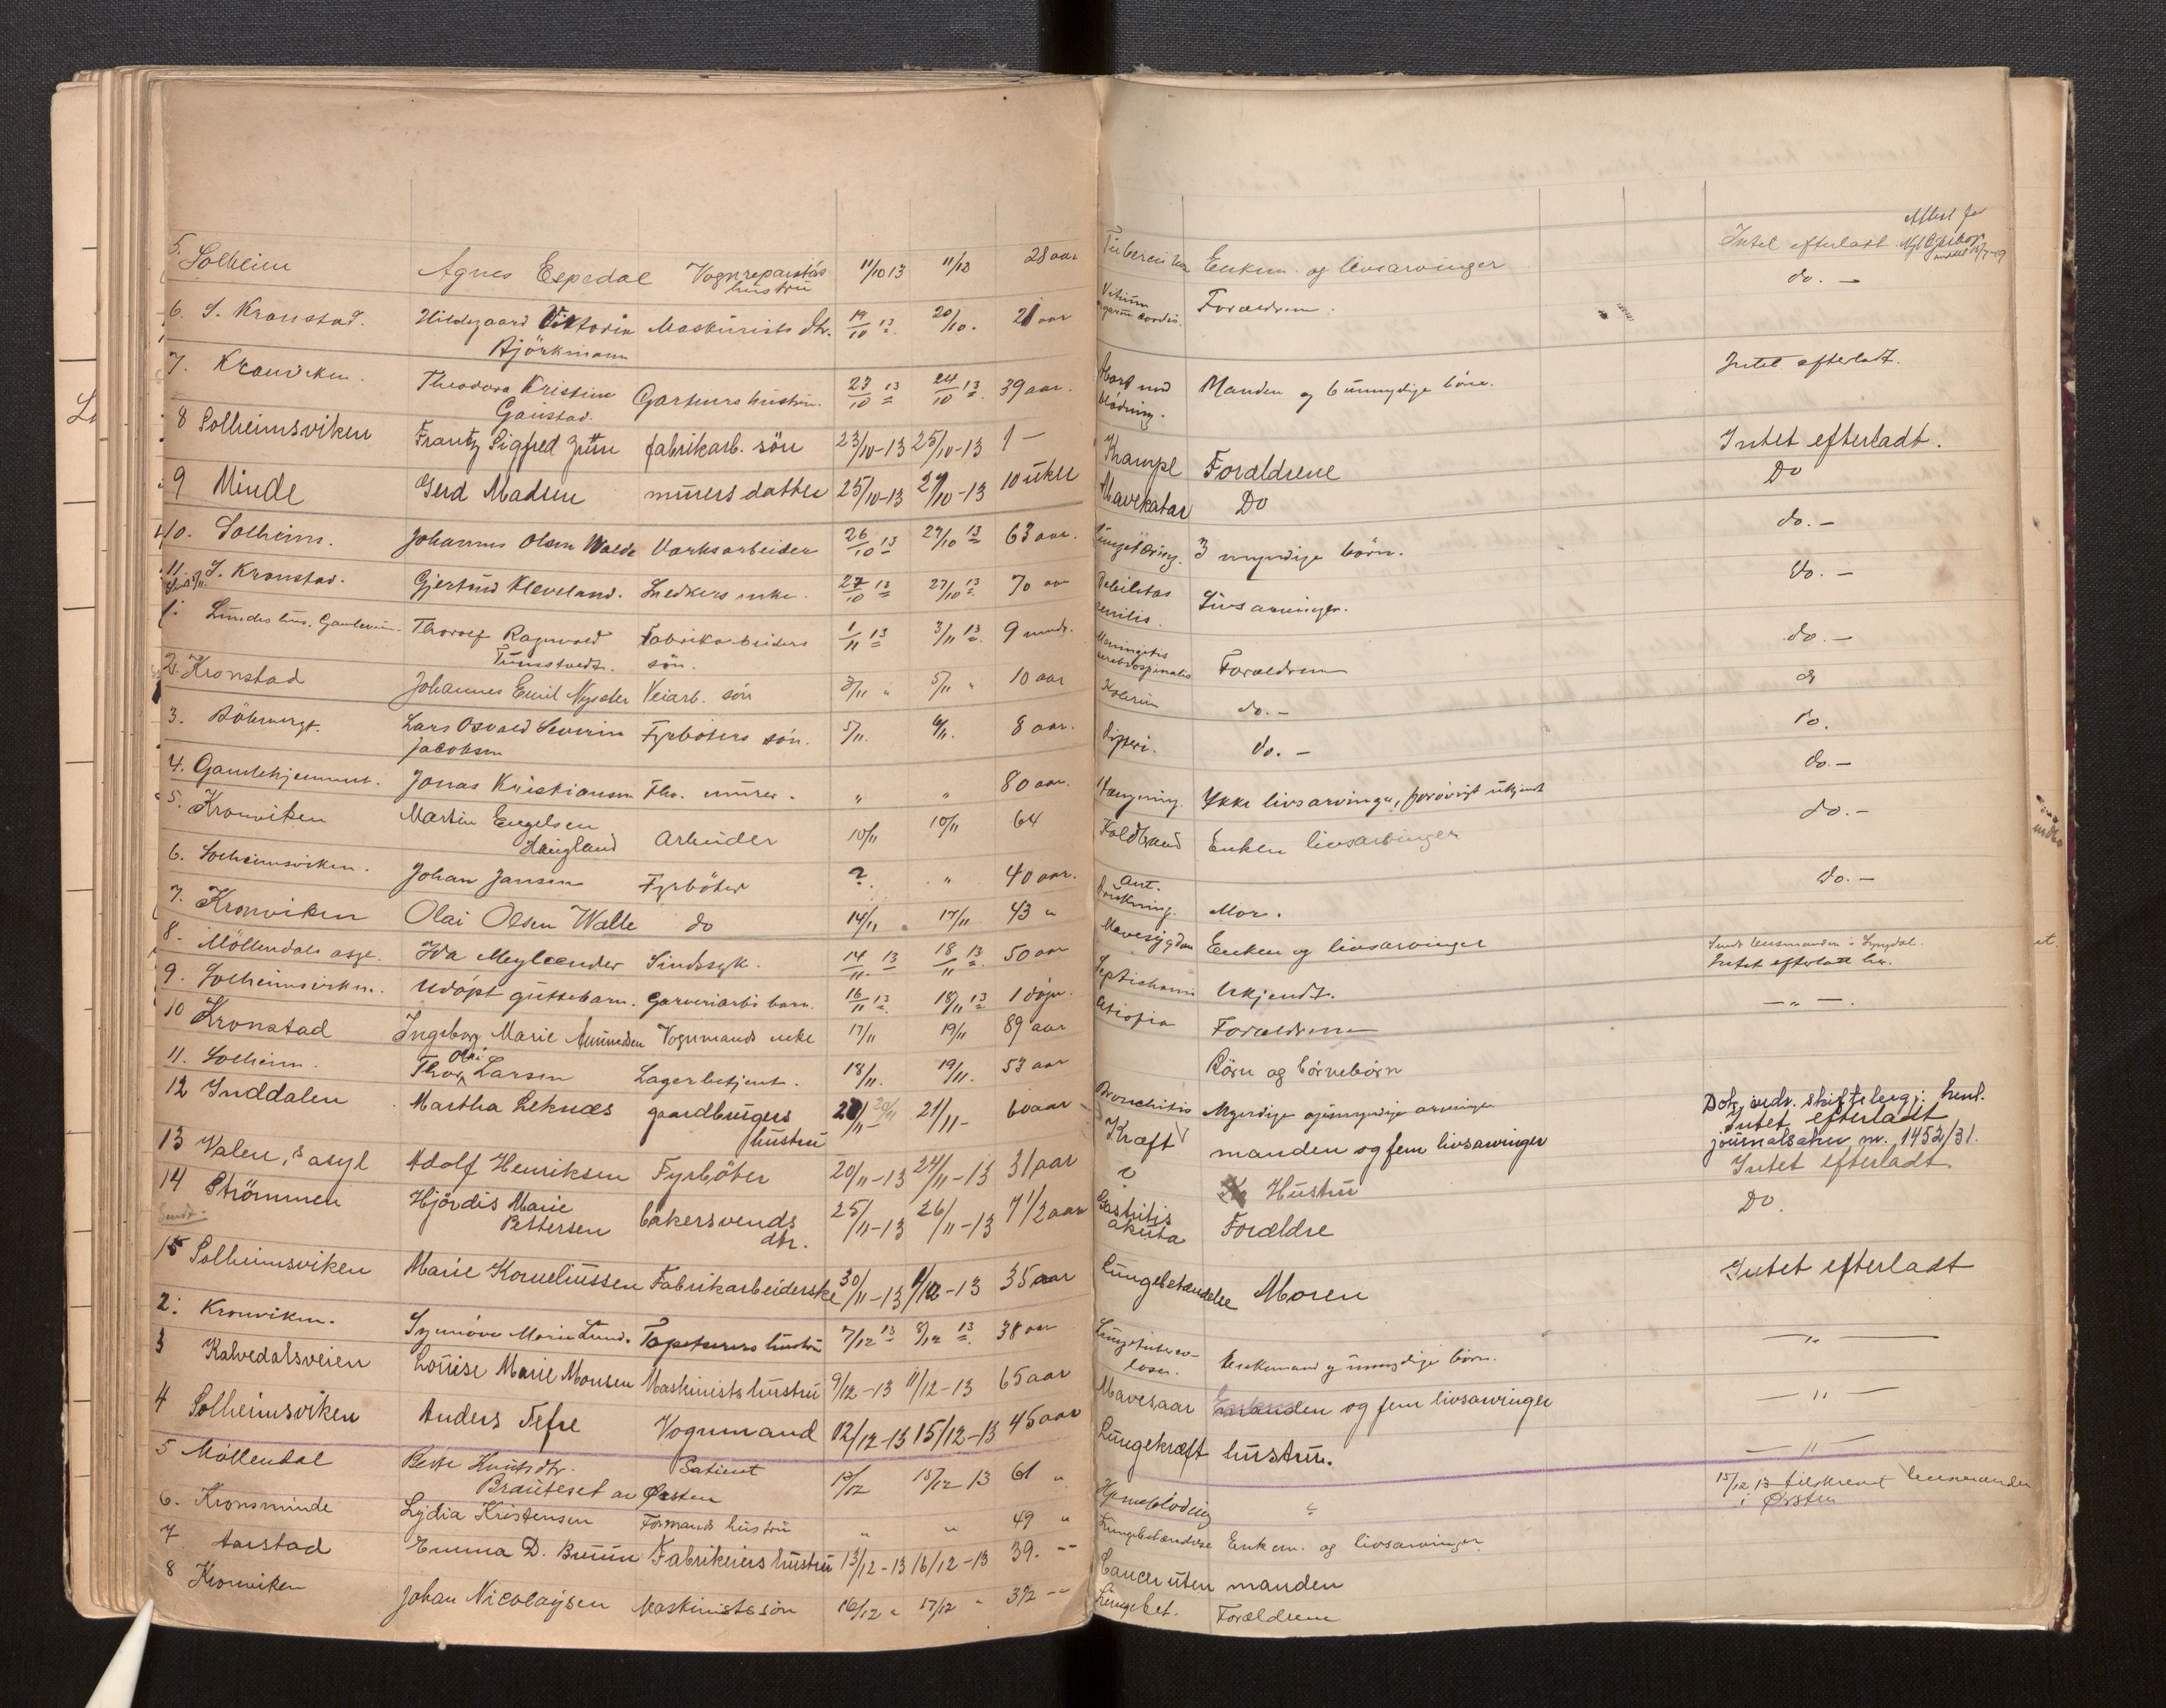 5. Solheim Agnes Espedal Vognreparatørs 11/10 13 11/10 28 aar Enkem. og livsarvinger Intet efterladt. Attest for
hustru do. —
6. S. Kronstad. Hildegaard Viktoria Maskinists dtr. 19/10 13 20/10. 21 aar Vitium Forældrene.
Björkmann organ. cordis.
7. Kronviken. Theodora Kristine Gartners hustru. 23/10 13 24/10 13. 39 aar. Abort med Manden og 6 umyndige børn. Intet efterladt.
Gaustad. blödning.
8 Solheimsviken Frantz Sigfred fabrikarb. sön 23/10-13 25/10-13 1 — Krampe Forældrene Intet efterladt.
9 Minde Gerd Madsen murers datter 25/10-13 27/10-13 10 uker Mavekatar Do Do
10. Solheim. Johannes Olsen Walde Værksarbeider 26/10 13 27/10 13 63 aar. 3 myndige børn. do. —
11. S. Kronstad. Gjertrud Kleveland. Snedkers enke. 27/10 13 27/10 13. 70 aar Debilitas Livsarvinger. do. —
senilis.
1. Lundes hus. Thorolf Ragnvald Fabrikarbeiders 1/11 13 3/11 13. 9 mndr. Meningitis Forældrene do. —
sön. cerebrospinalis
2. Kronstad Johannes Emil Nyseter Veiarb. sön 3/11 " 5/11 " 10 aar Kolerin do. —
3. Lars Osvald Severin Fyrböters sön. 5/11. 6/11. 8 aar. Difteri. do. — do.
Jacobsen
4. Gamlehjemmet. Jonas Kristiansen Fhv. murer. " " 80 aar. Hængning. Ikke livsarvinger, forøvrigt ukjendt do. —
5. Kronviken Martin Engelsen Arbeider 10/11 10/11 64 Koldbrand Enken livsarvinger do. —
Haugland
6. Solheimsviken. Johan Jansen Fyrböter ? " 40 aar. Ant. Mor. do. —
drukning.
7. Kronviken Olai Olsen Walle do 14/11 17/11 43 " Mavesygdom Enken og livsarvinger
8. Möllendals asyl. Ida Meylænder Sindssyk. 14/11 13 18/11 13. 50 aar Ukjendt. Sendt lensmanden i Lyngdal.
Intet efterladt her.
9. Solheimsviken. Udöpt guttebarn. Garveriarb. barn. 16/11 13 18/11 13 1 døgn. Atrofia Forældrene — " —.
10 Kronstad Ingeborg Marie Amundsen Vognmands enke 17/11 19/11 89 aar Börn og börnebörn
11. Solheim. Thor Olai Larsen Lagerbetjent. 18/11. 19/11. 53 aar Bronchitis Myndige og umyndige arvinger Dok. vedr. skiftebegj. henl.
12 Inddalen Martha Leknæs gaardbrugers 20/11 21/11- 60 aar Kræft manden og fem livsarvinger Intet efterladt
hustru journalsaken nr. 1452/31.
13 Valen, s asyl Adolf Henriksen Fyrböter 20/11-13 24/11-13 31 aar ? Hustru Intet efterladt.
14 Strömmen Hjördis Marie bakersvends 25/11-13 26/11-13 7 1/2 aar Gastritis Forældre Do.
Sendt. Pettersen dtr. akuta
15 Solheimsviken Marie Korneliussen Fabrikarbeiderske 30/11-13 1/12-13 35 aar Lungebetændelse Moren Intet efterladt
2. Kronviken. Synnöve Marie Lund. Tapetserers hustru 7/12 13 8/12 13. 38 aar Lungetuberku- Enkemand og umyndige börn. — " —
loser.
3 Kalvedalsveien Louise Marie Monsen Maskinists hustru 9/12-13 11/12-13 65 aar Mavesaar manden og fem livsarvinger — " —
4 Solheimsviken Anders Tefre Vognmand 12/12-13 15/12-13 45 aar Lungekræft hustru. — " —
5 Möllendal Berte Knutsdtr. Patient 13/12 15/12 13 61 " Hjerneblödning " 15/12 13 tilskrevet lensmanden
Brauteset av Ørsten i Ørsten
6. Kronsminde Lydia Kristensen Formands hustru " " 49 " Lungebetændelse Enkem. og livsarvinger
7 Aarstad Emma D. Bruun Fabrikeiers hustru 13/12-13 16/12-13 39. -- Cancer uteri manden
8 Kronviken Johan Nicolaysen Maskinistssön 16/12 " 17/12 " 3 1/2 -- Lungebet. Forældrene